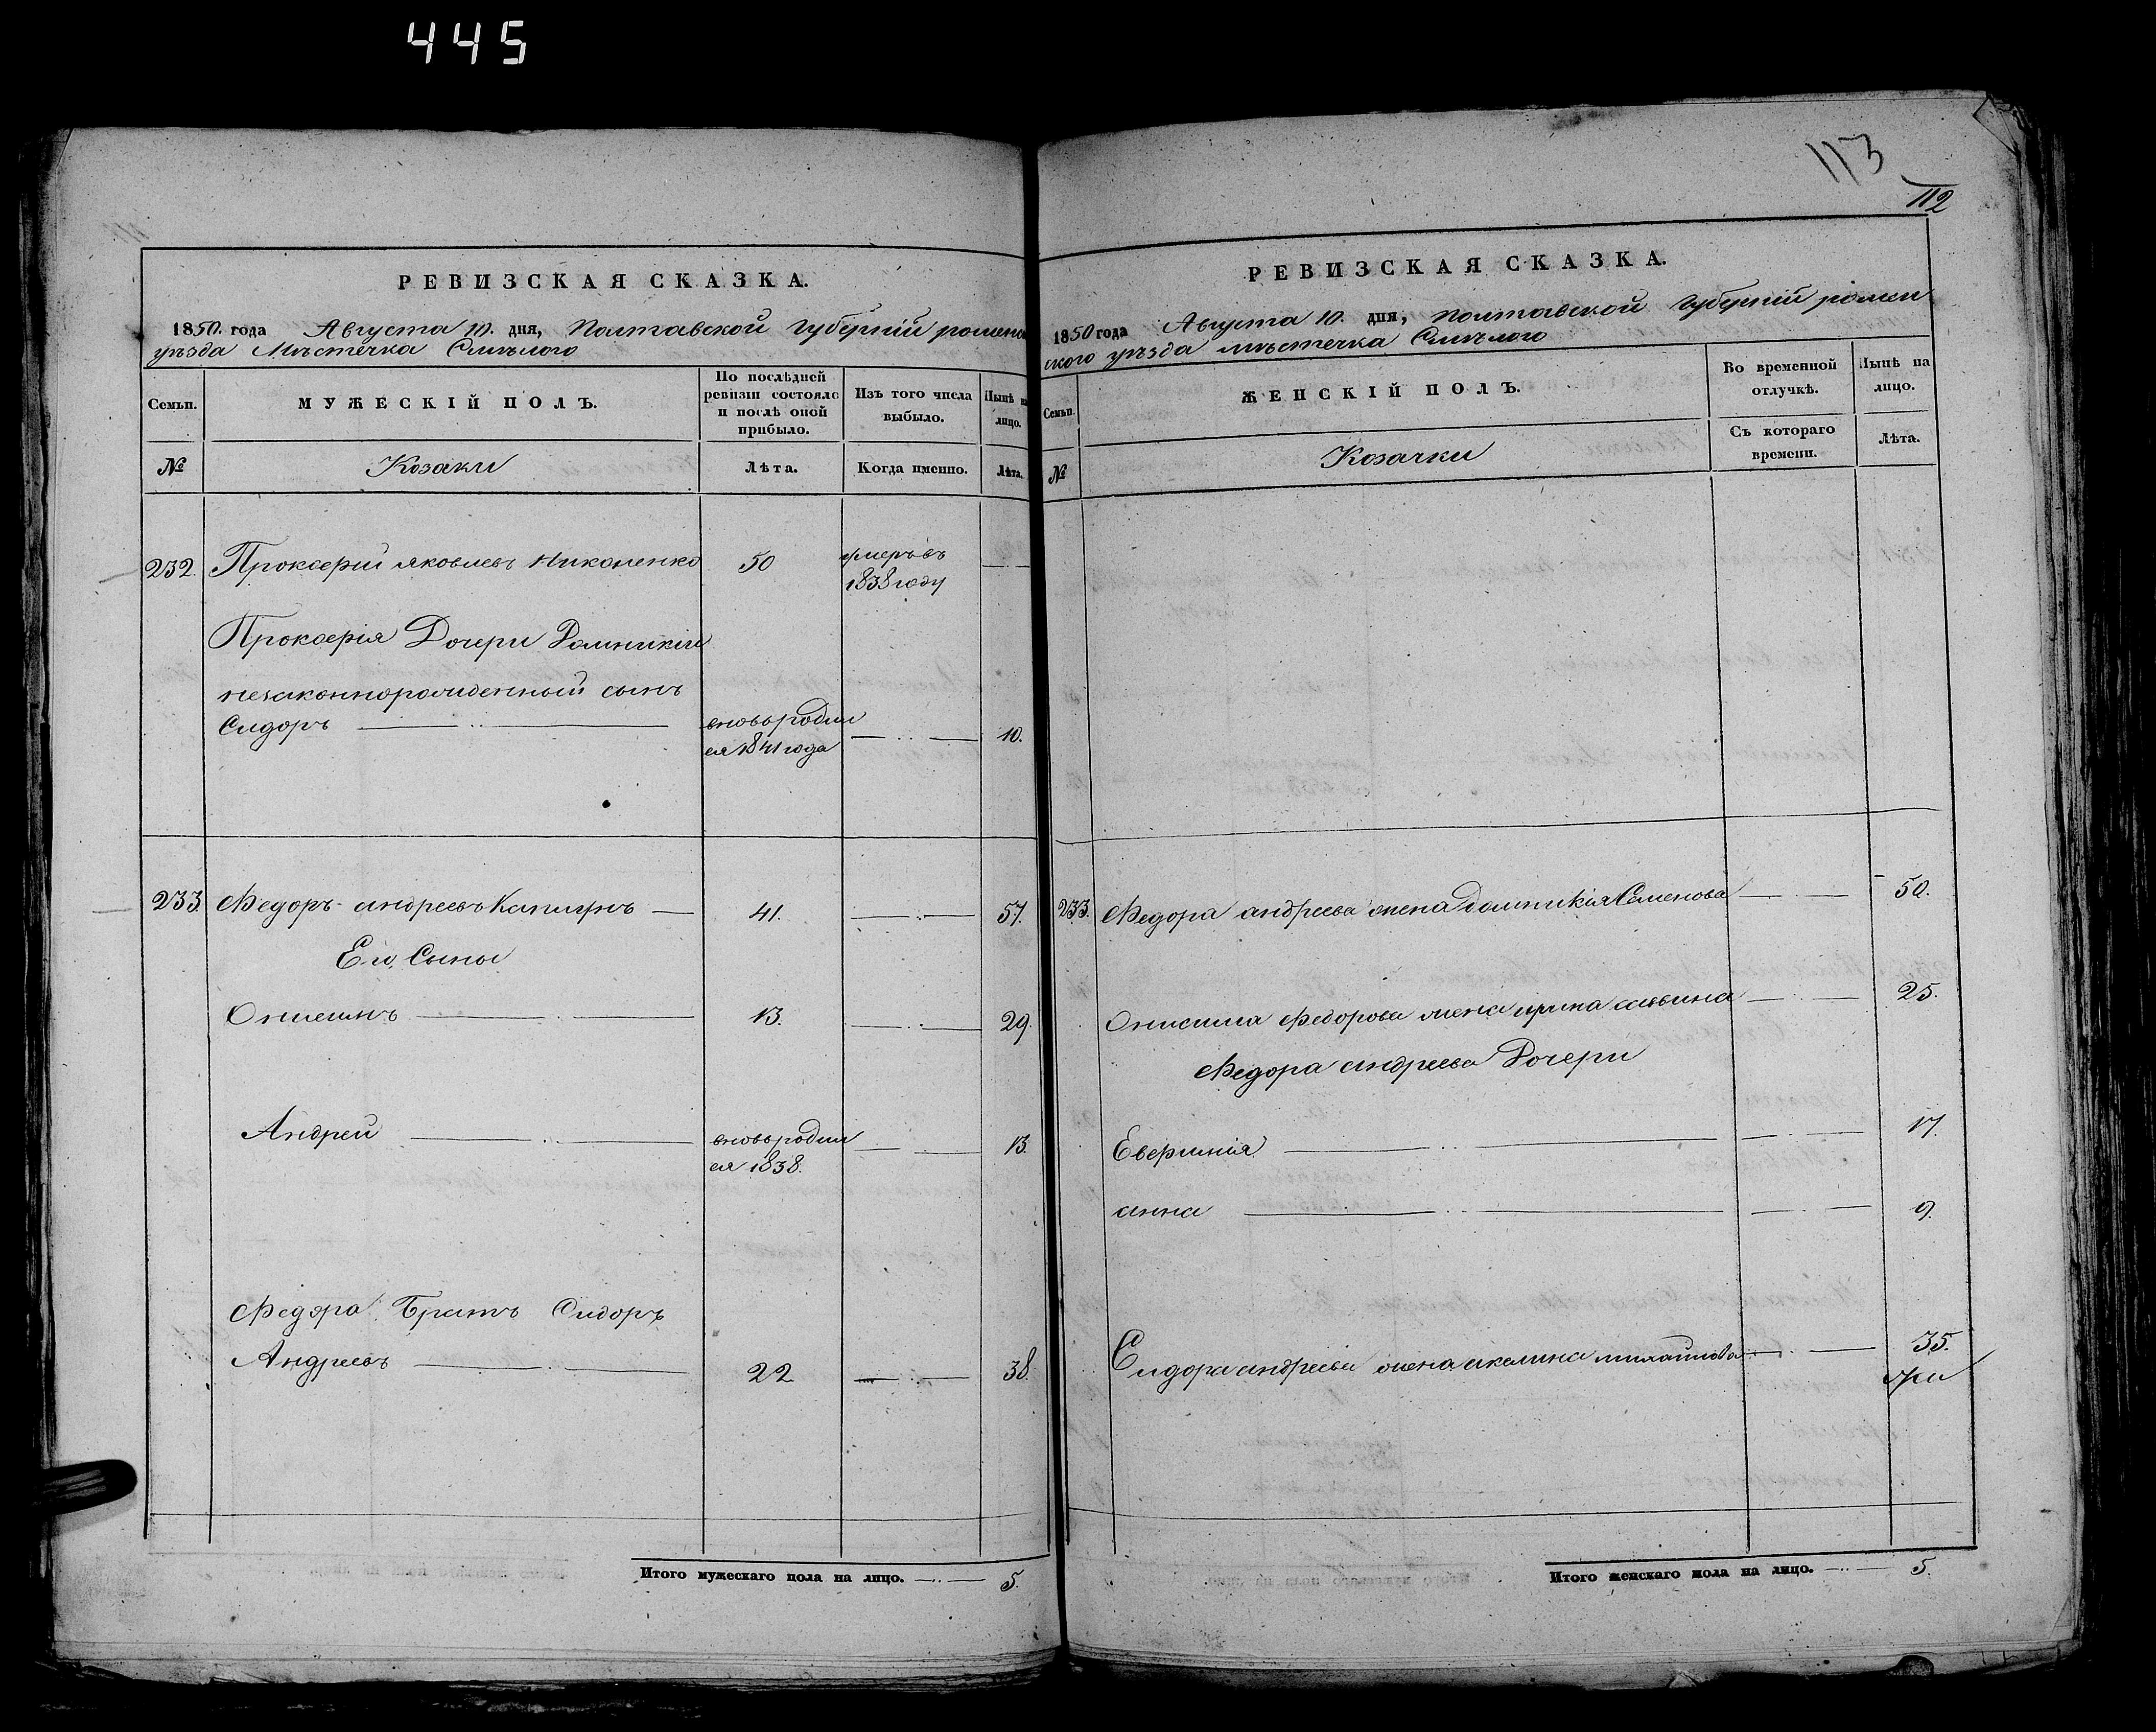 445
РЕВИЗСКАЯ СКАЗКА.
1850. года Августа 10. дня, Полтавской Губерніи роменс
уѣзда Мѣстечка Смѣлого
Семьи.
МУЖЕСКІЙ ПОЛЪ.
По послѣдней ревизіи состояло и послѣ оной прибыло.
Изъ того числа выбыло.
Нынѣ на лицо.
№
Козаки
Лѣта.
Когда именно.
Лѣта.
232. Прокофій яковлевъ Николенко 50 умеръ въ
1838 году
Прокофія Дочери Домникіи
незаконнорожденный сынъ
Сидоръ вновь родил
ся 1841 года 10.
233. Федоръ андреевъ 41. 57.
Его Сыны
Онисимъ 13. 29.
Андрей вновь родил
ся 1838. 13.
Федора Братъ Сидоръ
Андреевъ 22 38.
Итого мужескаго пола на лицо. 5.
113
112
РЕВИЗСКАЯ СКАЗКА.
1850 года Августа 10. дня, полтавской Губерніи ромен
ского уѣзда мѣстечка Смѣлого
Семьи.
ЖЕНСКІЙ ПОЛЪ.
Во временной отлучкѣ.
Нынѣ на лицо.
№
Козачки
Съ котораго времени.
Лѣта.
233. Федора андреева жена Домникія Семенова 50.
Онисима Федорова жена ирина саввина 25.
Федора андреева Дочери
Евфимія 17.
анна 9.
Сидора андреева жена акилина михайлова 35.
Итого женскаго пола на лицо. 5.